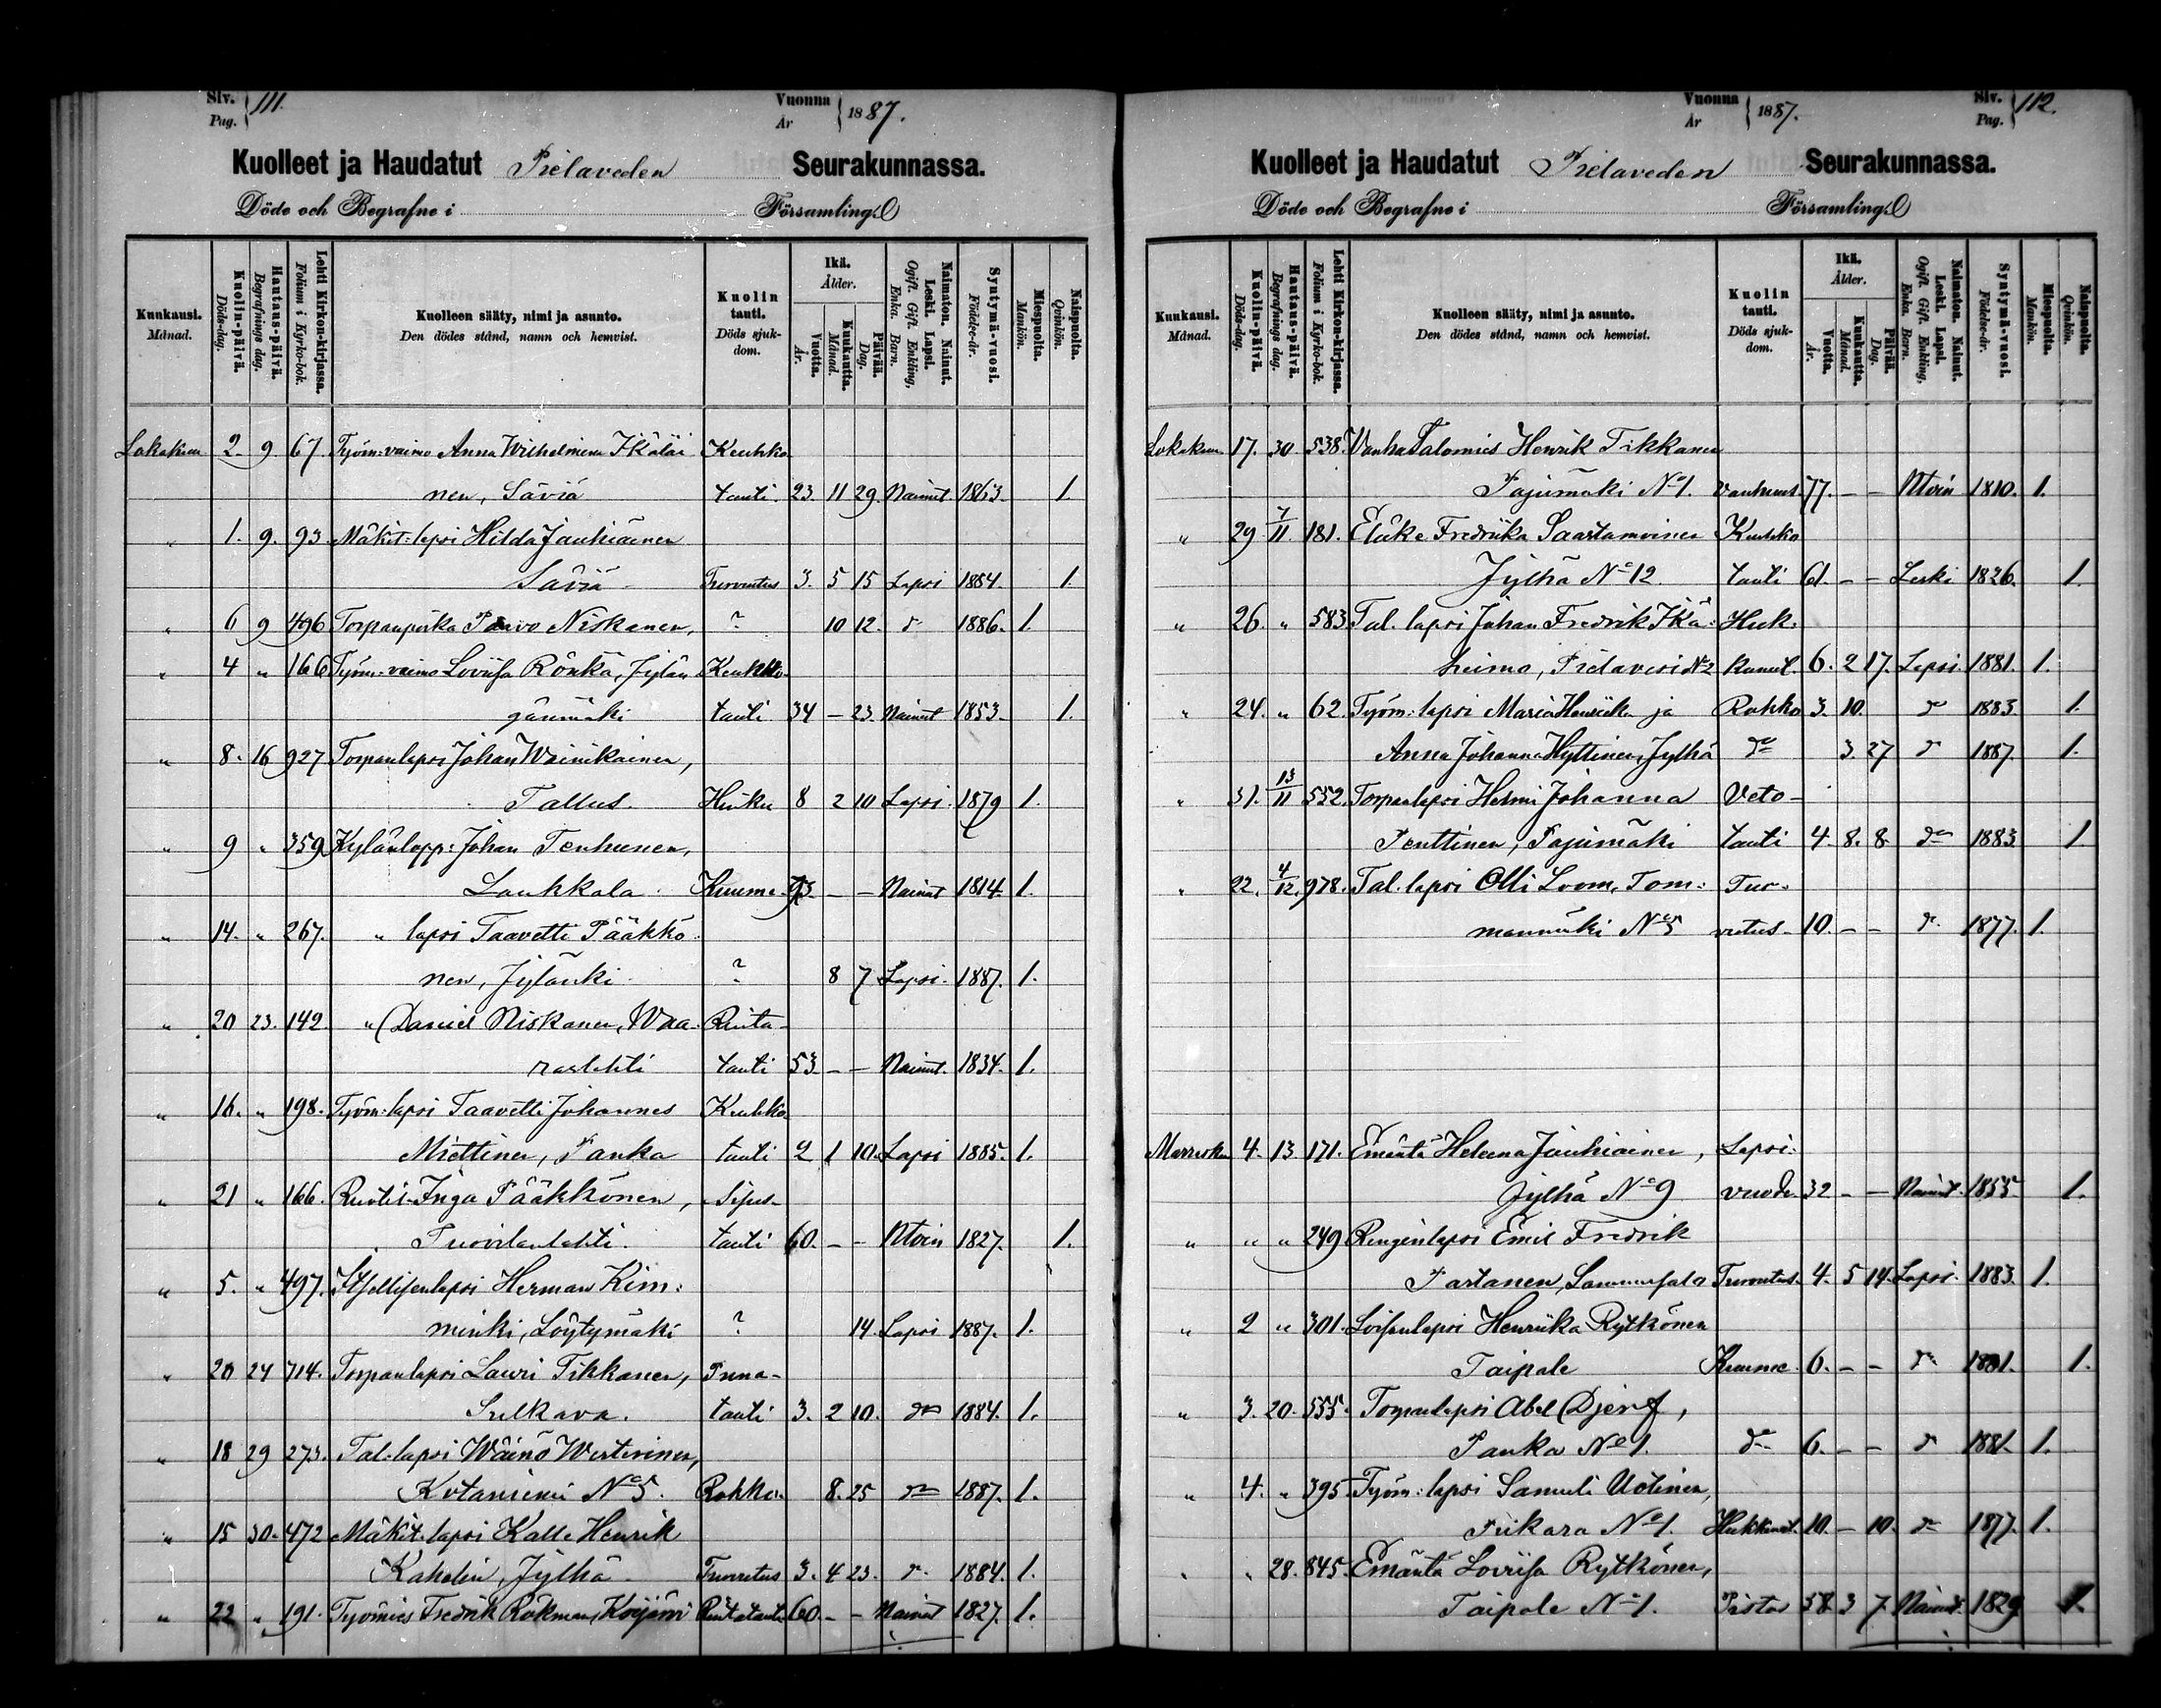 Siv. Pag. 111.
Vuonna År 1887.
Kuolleet ja Haudatut Pielaveden Seurakunnassa.
Döde och Begrafne i Församling.
Kuukausi. Månad.
Kuolin-päivä. Döds-dag.
Hautaus-päivä. Begrafnings dag.
Lehti Kirkon-kirjassa. Folium i Kyrko-bok.
Kuolleen sääty, nimi ja asunto. Den dödes stånd, namn och hemvist.
Kuolin tauti. Döds sjukdom.
Ikä. Ålder.
Vuotta. År.
Kuukautta. Månad.
Päivää. Dag.
Naimaton. Nainut. Leski. Lapsi. Ogift. Gift. Enkling, Enka. Barn.
Syntymä-vuosi. Födelse-år.
Miespuolta. Mankön.
Naispuolta. Qvinkön.
Lokakuu 2. 9 67. Työm: vaimo Anna Wilhelmina Ikäläi Keuhko
nen, Säviä tauti. 23. 11 29. Nainut 1863. 1.
" 1. 9. 93. Mäkit: lapsi Hilda Jauhiainen
Säviä Turvotus 3. 5 15 Lapsi 1884. 1.
" 6 9 496 Torpanpoika Paavo Niskanen, ? 10 12. d 1886. 1.
" 4 " 166 Työm: vaimo Loviisa Rönkä, Jylän Keuhko
gänmäki tauti 34 - 23. Nainut 1853. 1.
" 8. 16 927 Torpanlapsi Johan Wainikainen,
Tallus. Hinku 8 2 10 Lapsi. 1879 1.
" 9 " 359 Kylänlopp: Johan Tenhunen,
Laukkala. Kuume. 73. - - Nainut 1814. 1.
" 14. " 267. " lapsi Taavetti Pääkkö
nen, Jylänki ? 8 7 Lapsi. 1887. 1.
" 20 23. 142. " Daniel Niskanen, Waa Rinta
raslahti tauti 53. - - Nainut. 1834. 1.
" 16. " 198. Työm: lapsi Taavetti Johannes Keuhko
Miettinen, Panka tauti 2 1 10. Lapsi 1885. 1.
" 21 " 166. Ruotil. Inga Pääkkönen,
Tuovilanlahti. tauti 60. - - Ntoin 1827. 1.
" 5. " 497. Itsellisenlapsi Herman Kim:
minki, Löytymäki ? 14. Lapsi 1887. 1.
" 20 24 714. Torpanlapsi Lauri Tikkanen, Puna-
Sulkava. tauti 3. 2 10. do 1884. 1.
" 18 29 273. Tal: lapsi Wäinö Wertiainen,
Kotaniemi No 5. Rokko. 8. 25 do 1887. 1.
" 15 30. 472 Mäkit. lapsi Kalle Henrik
Kaholin, Jylhä. Turvotus 3. 4 23. d. 1884. 1.
" 22 " 191. Työmies Fredrik Rökman, Koijärvi Rintatauti 60. - - Nainut 1827. 1.
Siv. Pag. 112.
Vuonna År 1887.
Kuolleet ja Haudatut Pielaveden Seurakunnassa.
Döde och Begrafne i Församling.
Kuukausi. Månad.
Kuolin-päivä. Döds-dag.
Hautaus-päivä. Begrafnings dag.
Lehti Kirkon-kirjassa. Folium i Kyrko-bok.
Kuolleen sääty, nimi ja asunto. Den dödes stånd, namn och hemvist.
Kuolin tauti. Döds sjukdom.
Ikä. Ålder.
Vuotta. År.
Kuukautta. Månad.
Päivää. Dag.
Naimaton. Nainut. Leski. Lapsi. Ogift. Gift. Enkling, Enka. Barn.
Syntymä-vuosi. Födelse-år.
Miespuolta. Mankön.
Naispuolta. Qvinkön.
Lokakuu 17. 30 538. Vanha Talomies Henrik Tikkanen
Pajumäki No 1. Vanhuus. 77. - - Ntoin 1810. 1.
" 29 7/11. 181. Eläke Fredriika Saastamoinen Keuhko
Jylhä No 12. tauti 61. - - Leski 1826. 1.
" 26. " 583 Tal. lapsi Johan Fredrik Ikä: Huk.
heimo, Pielavesi No 2 kunut. 6. 2 17. Lapsi. 1881. 1.
" 24. " 62. Työm: lapsi Maria Henriika ja Rokko 3. 10. d 1883. 1.
Anna Johanna Hyttinen, Jylhä do 3. 27 d 1887. 1.
" 31. 13/11 552. Torpanlapsi Helmi Johanna Veto-
Penttinen, Pajumäki tauti 4. 8. 8 do 1883. 1.
" 22. 4/12. 978. Tal. lapsi Olli Loom, Tom: Tur-
manmäki No 5 votus. 10. - - d. 1877. 1.
Marrasku 4. 13 171. Emäntä Helena Jauhiainen, Lapsi:
Jylhä No 9 vuode 32 - - Nainut. 1855 1.
" " " 249. Rengin lapsi Emil Fredrik
Partanen, Lammassalo Turvotus. 4. 5 14. Lapsi. 1883. 1.
" 2 " 301. Loisenlapsi Henriika Rytkönen
Taipale Kuume. 6. - - do 1881. 1.
" 3. 20. 555. Torpanlapsi Abel Djerf,
Panka No 1. do 6. - - d 1881. 1.
" 4. " 395 Työm: lapsi Samuli Uotinen,
No 1. Hukkunut. 10. - 10. do 1877. 1.
" " 28. 845. Emäntä Loviisa Rytkönen,
Taipale No 1. Pistos 58. 3 7. Nainut. 1829 1.